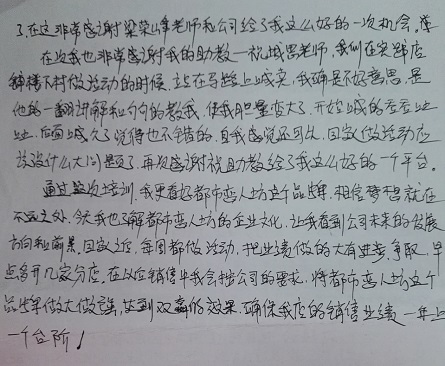 了,在这非常感谢梁荣峰老师和公司给了我这么好的一次机会。
在次我也非常感谢我的助教一祝城恩老师,我们在实践店
做活动的时候,站在马路上喊卖,我确是不好意思,是
他的一番讲解和句句的教我,使我胆量变大了,开始喊的歪歪
后面喊久了觉得也不错的,自我感觉还可以,回家做活动应
该没什么大问题了,再次感谢祝助教给了我这么好的一个平台。
通过这次培训,我更看好都市恋人坊这个品牌,相信梦想就在
不远之外,今天我也了解都市恋人坊的企业文化,让我看到公司未来的发展
方向和前景,回家之后,每周都做活动,把业绩做的大有进步,争取早
点多开几家分店,在以后销售中我会按公司的要求,将都市恋人坊这个
品牌做大做强,达到双赢的效果,确保我店的销售业绩一年上
一个台阶!